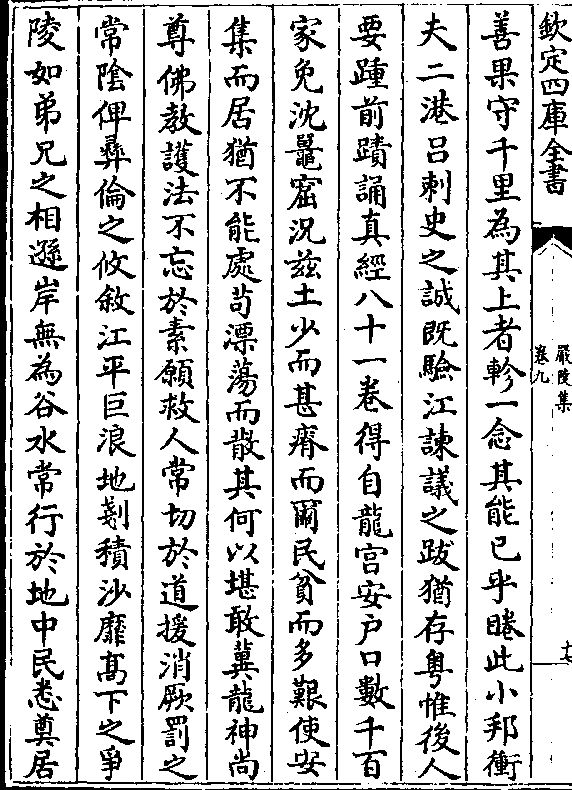 欽定四庫全書
嚴陵集
卷九
十七
善果守千里為其上者軫一念其能已乎睠此小邦衝
夫二港吕刺史之誠既驗江諫議之跋猶存粤惟後人
要踵前蹟誦真經八十一卷得自龍宫安户口數千百
家免沈鼉窟況兹土少而甚瘠而爾民貧而多艱使安
集而居猶不能處茍漂蕩而散其何以堪敢冀龍神尚
尊佛教護法不忘於素願救人常切於道援消厥罰之
常陰俾彞倫之攸敘江平巨浪地剗積沙靡髙下之爭
陵如弟兄之相遜岸無為谷水常行於地中民悉奠居